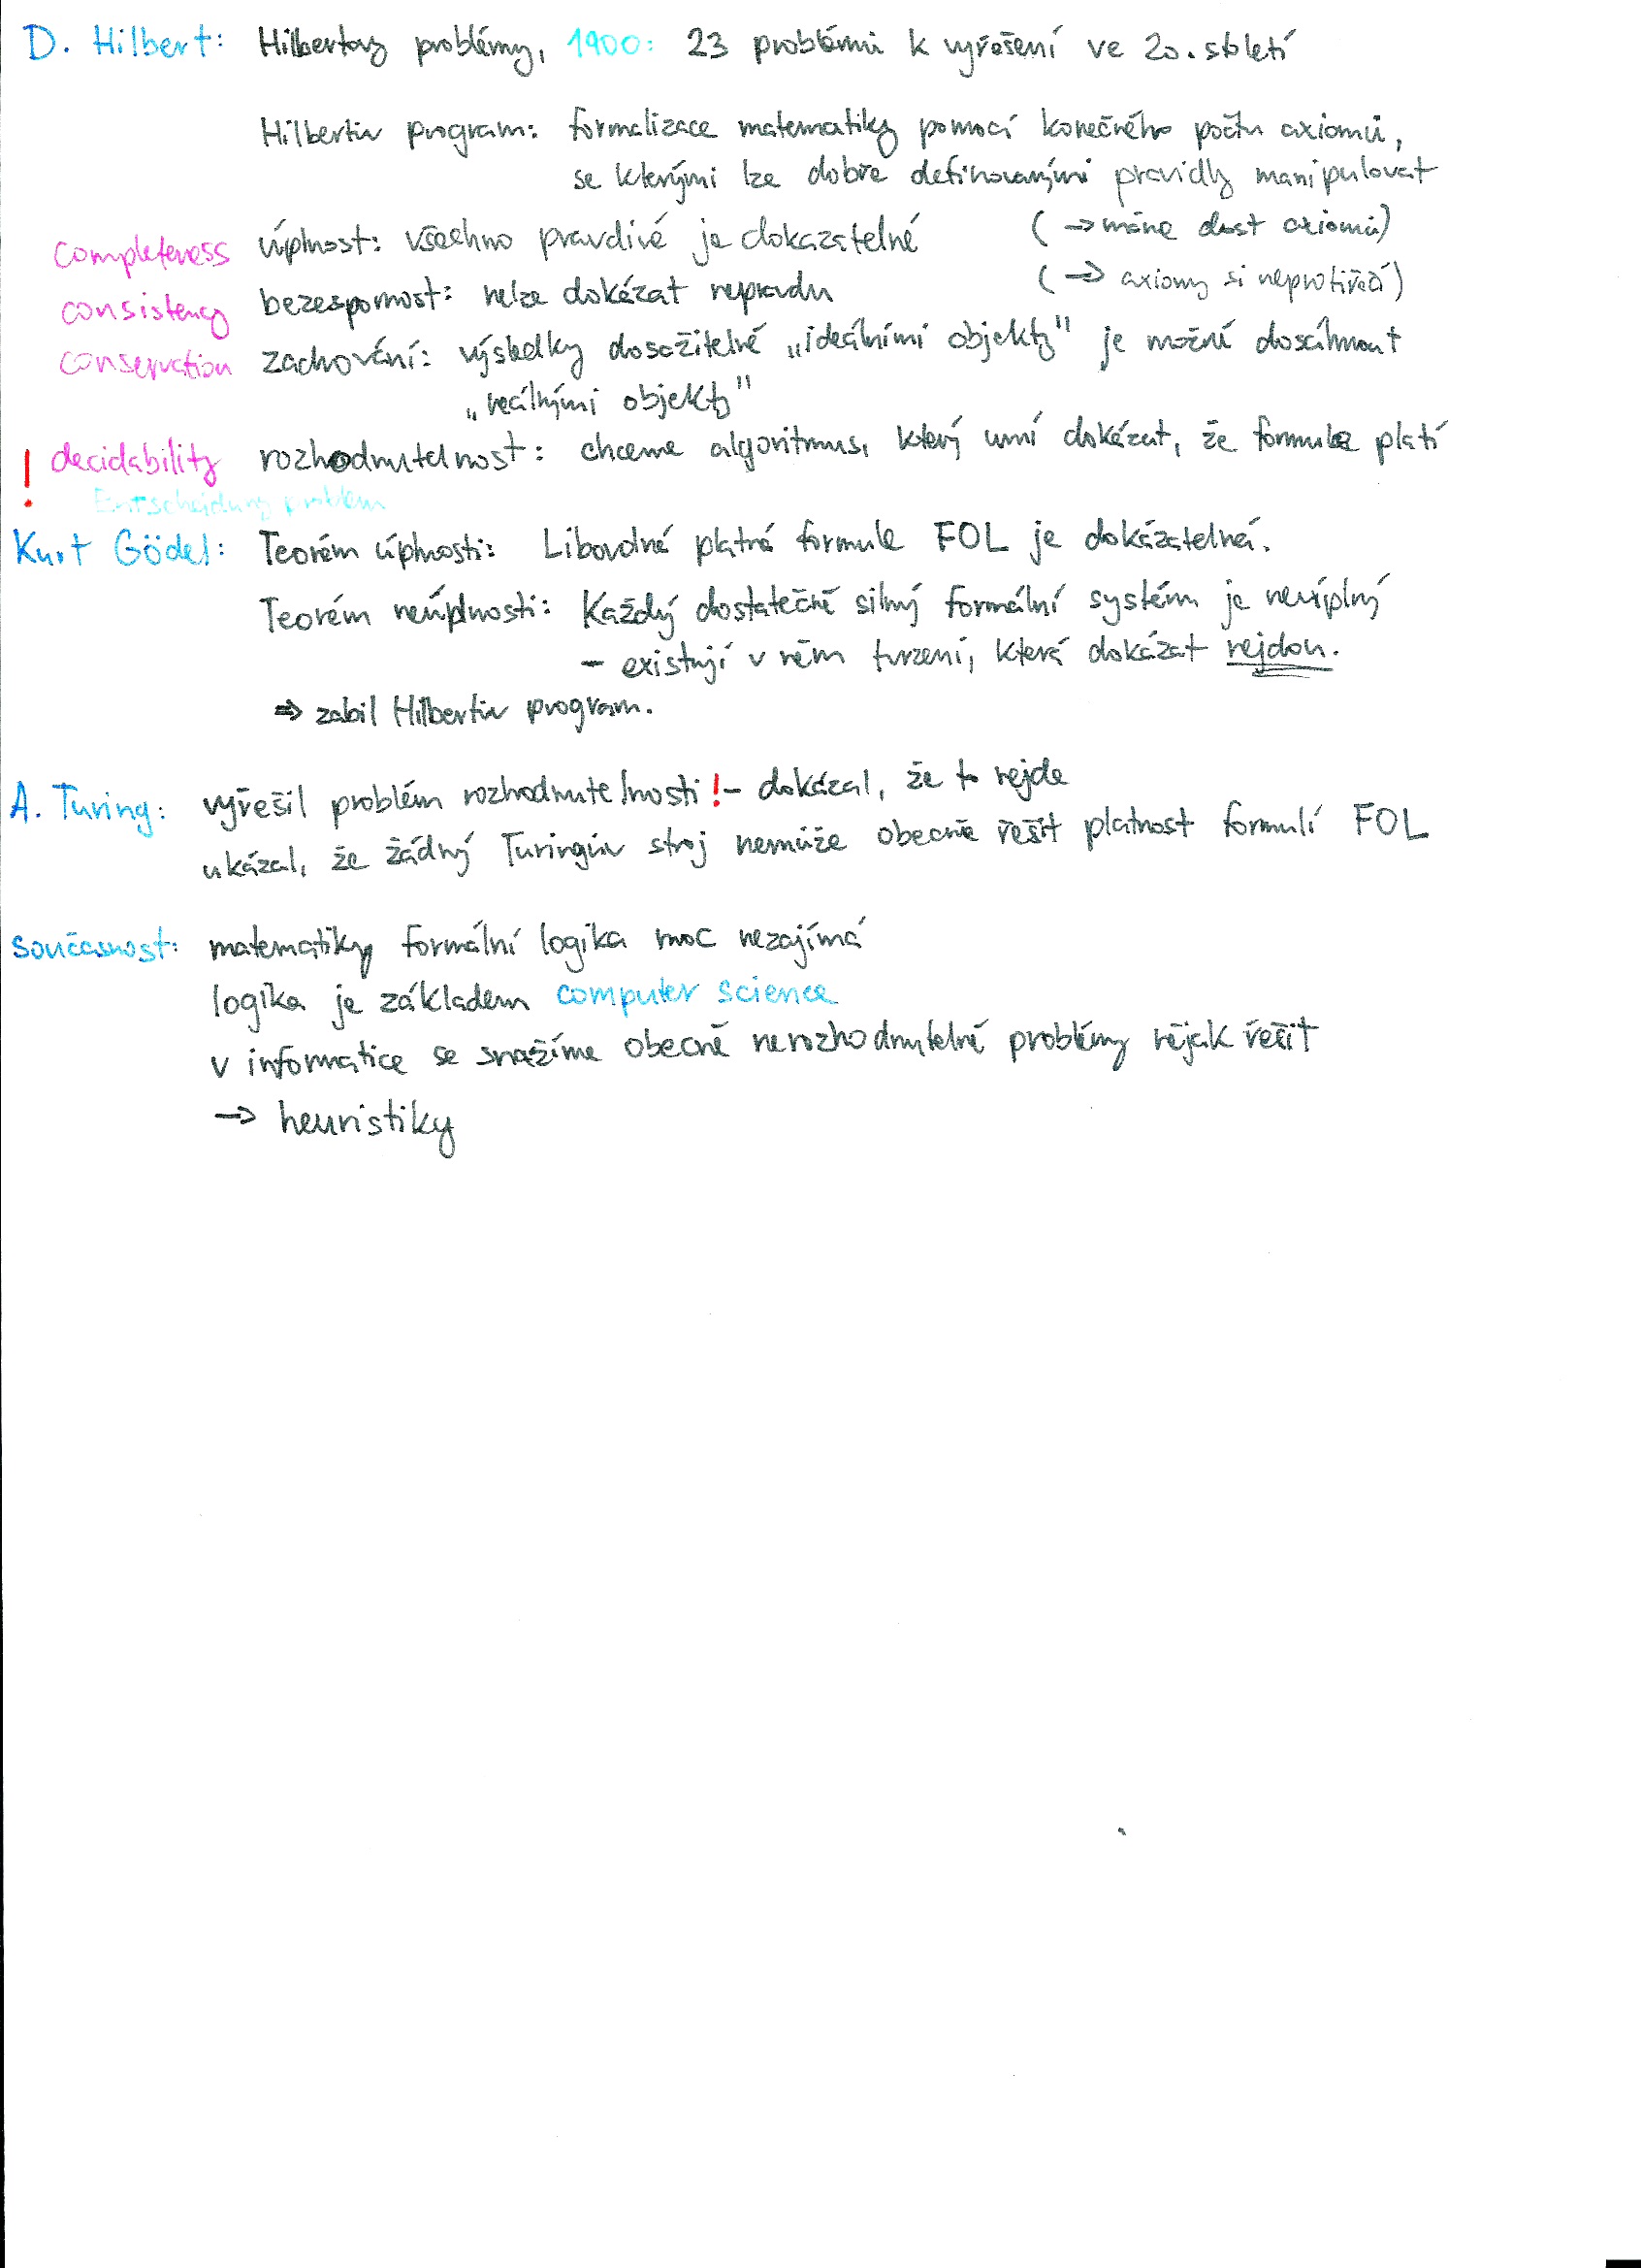 D. Hilbert: Hilbertovy problémy, 1900: 23 problémů k vyřešení ve 20. století
Hilbertův program: formalizace matematiky pomocí konečného počtu axiomů,
se kterými lze dobře definovanými pravidly manipulovat
completeness úplnost: všechno pravdivé je dokazatelné (→ máme dost axiomů)
consistency bezespornost: nelze dokázat nepravdu (→ axiomy si neprotiřečí)
conservation zachování: výsledky dosažitelné „ideálními objekty" je možné dosáhnout
„reálnými objekty"
! decidability rozhodnutelnost: chceme algoritmus, který umí dokázat, že formule platí
Entscheidungsproblem
Kurt Gödel: Teorém úplnosti: Libovolná platná formule FOL je dokázatelná.
Teorém neúplnosti: Každý dostatečně silný formální systém je neúplný
– existují v něm tvrzení, která dokázat nejdou.
⇒ zabil Hilbertův program.
A. Turing: vyřešil problém rozhodnutelnosti ! – dokázal, že to nejde
ukázal, že žádný Turingův stroj nemůže obecně řešit platnost formulí FOL
současnost: matematiky formální logika moc nezajímá
logika je základem computer science
v informatice se snažíme obecně nerozhodnutelné problémy nějak řešit
→ heuristiky